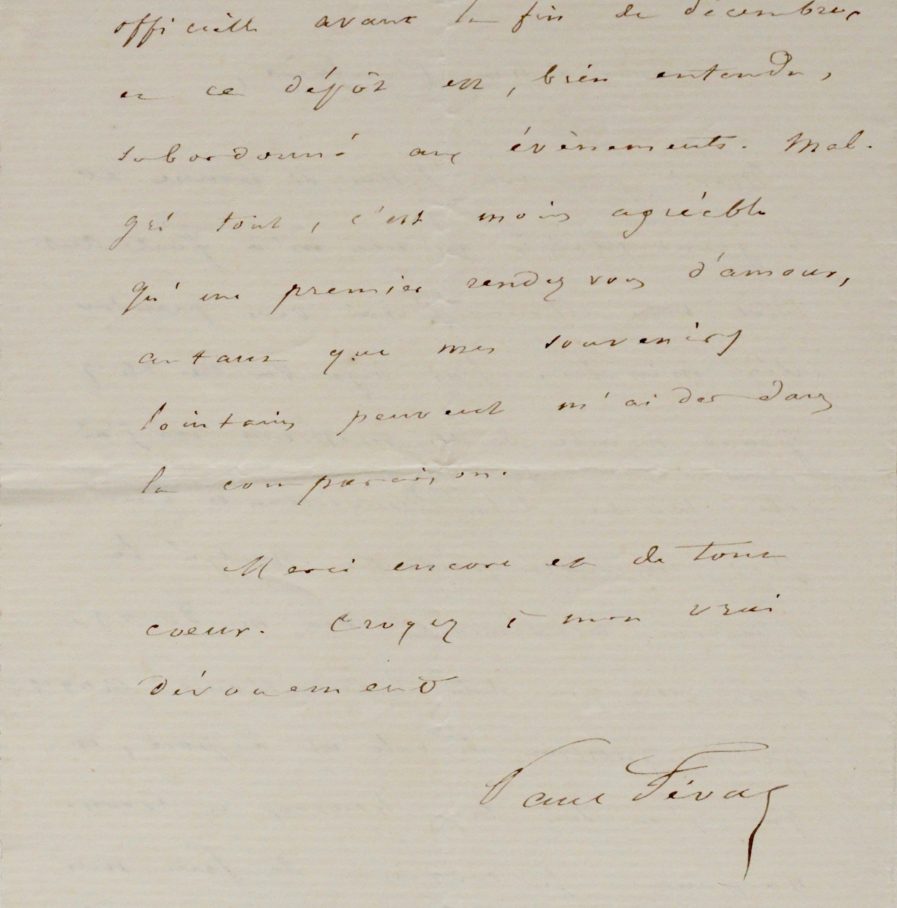 officielle avant la fin de décembre,
et ce dépôt est, bien entendu,
subordonné aux évènements. Mal-
gré tout, c'est moins agréable
qu'un premier rendez vous d'amour,
autant que mes souvenirs
lointains peuvent m'aider dans
la comparaison.
Merci encore et de tout
coeur. Croyez à mon vrai
dévouement
Paul Féval